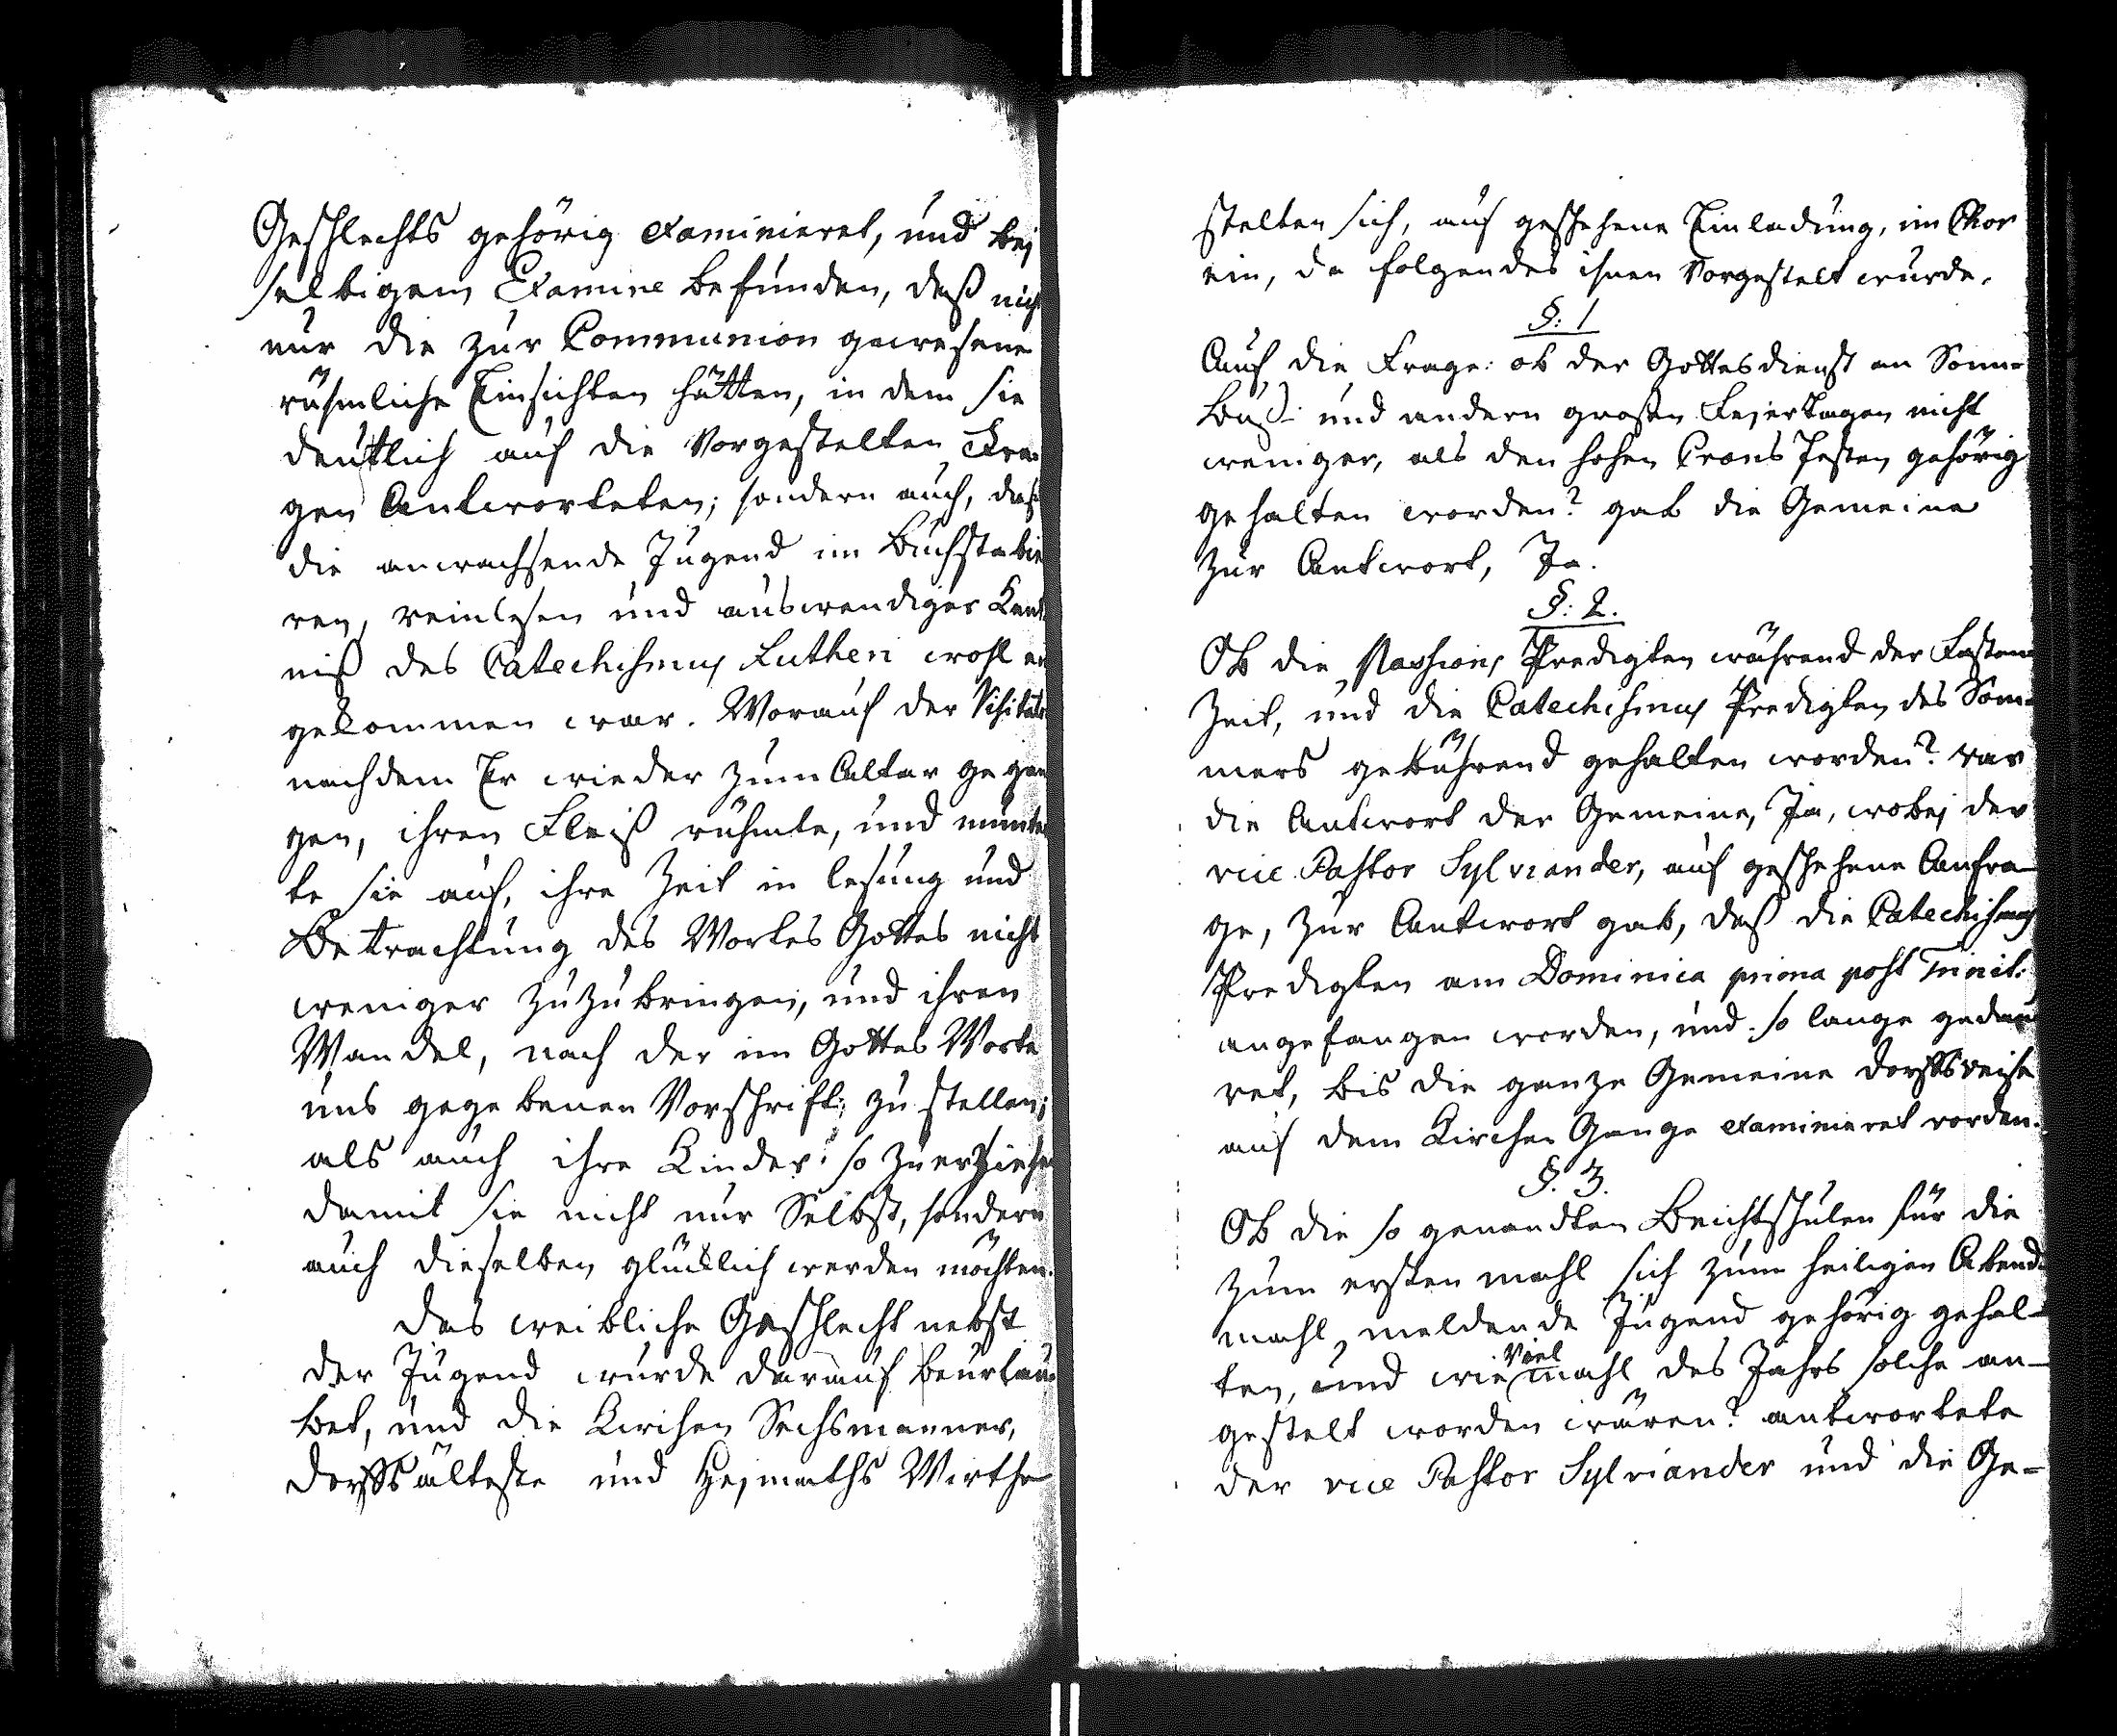 Geschlechts gehörig examinieret, und bej
selbigem Examine befunden, daß nich
nur die zur Communion gewesene
rühmliche Einsichten hätten, in dem sie
deutlich auf die Vorgestelten Fra-
gen Antworteten; sondern auch, daß
die anwachsende Jugend im Buchstabie
ren, reinlesen und auswendiger Kent
niß des Catechismus Lutheri wohl an
gekommen war. Worauf der Visitator
nachdem Er wieder zum Altar gegan
gen, ihren Fleiß rühmte, und munter
te sie auf, ihre Zeit in lesung und
Betrachtung des Wortes Gottes nicht
weniger zuzubringen, und ihren
Wandel, nach der im Gottes Worte
uns gegebenen Vorschrift, zu stellen;
als auch ihre Kinder so zuerziehe
damit sie nicht nur Selbst, sondern
auch dieselben glücklich werden möchten.
Das weibliche Geschlecht nebst
der Jugend wurde darauf beurlau-
bet, und die Kirchen Sechsmanner,
Dorffsälteste und Hejmaths Wirthe
stelten sich, auf geschehene Einladung, im Chor
ein, da folgendes ihnen Vorgestelt wurde.
§: 1
Auf die Frage: ob der Gottesdienst an Sonn-
Buß- und andern großen Fejertagen nicht
weniger, als den hohen Crons Festen gehörig
gehalten worden? gab die Gemeine
zur Antwort, Ja.
§: 2.
Ob die Passions Predigten während der Fasten
Zeit, und die Catechismus Predigten des Som-
mers gebührend gehalten worden? war
die Antwort der Gemeine, Ja, wobej der
vice Pastor Sylviander, auf geschehene Anfra-
ge, zur Antwort gab, daß die Catechismus
Predigten am Dominica prima post Trinit:
angefangen worden, und so lange gedau
ret, bis die ganze Gemeine dorffsweise
auf dem Kirchen Gange examinieret worden.
§. 3.
Ob die so genandten Beichtschulen für die
zum ersten mahl sich zum heiligen Abend-
mahl meldende Jugend gehörig gehal-
ten, und wie viel mahl des Jahrs solche an-
gestelt worden wären? antwortete
der vice Pastor Sylviander und die Ge-